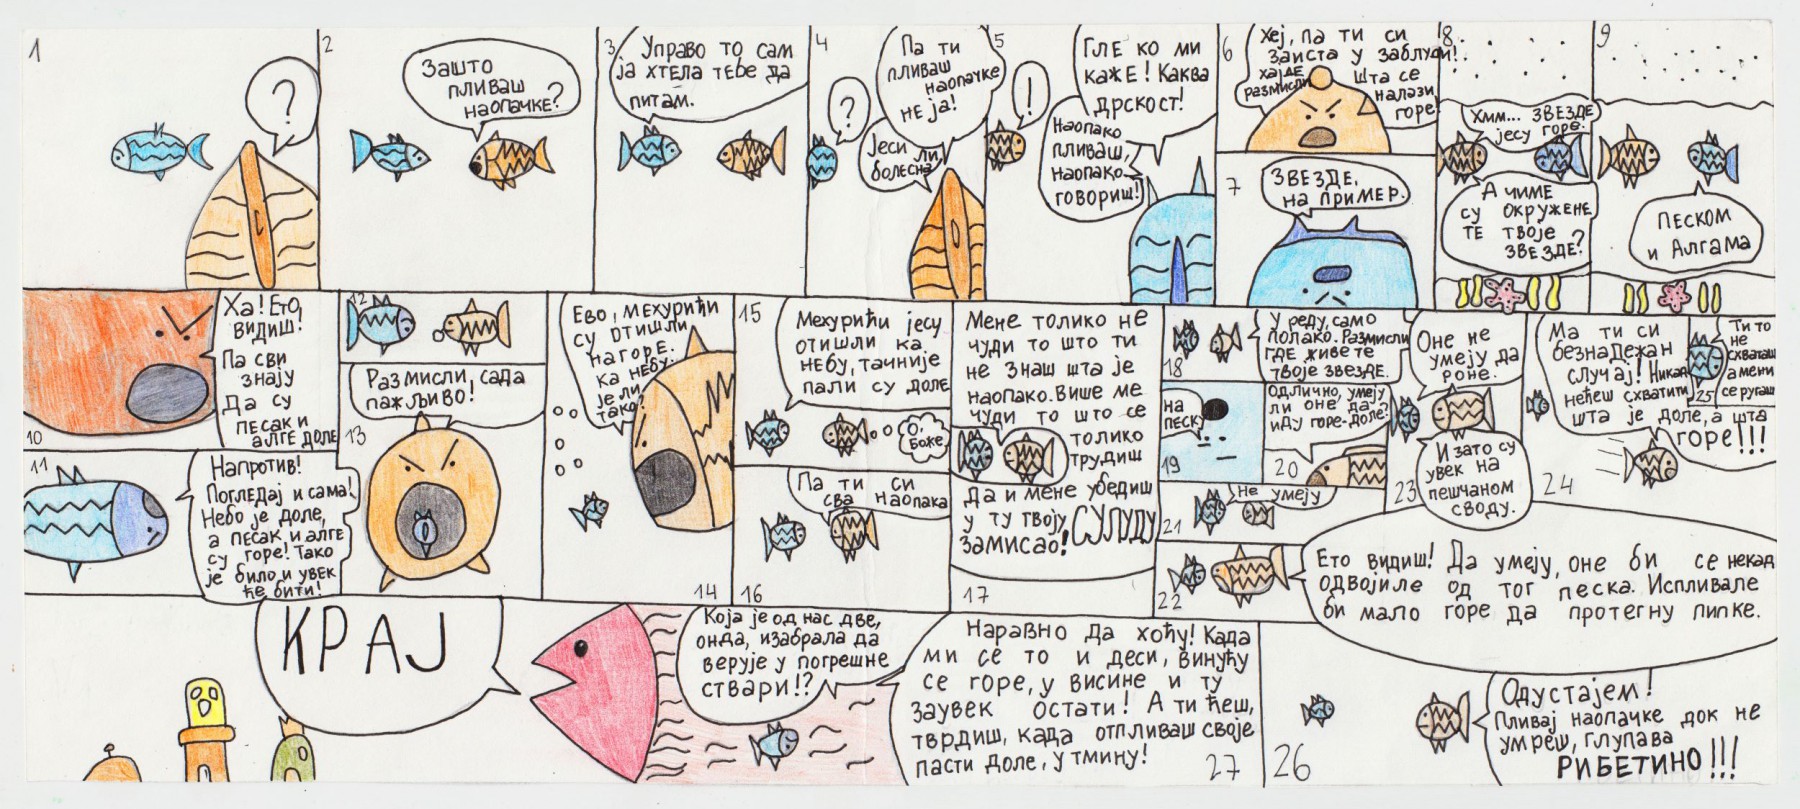 1
?
2
Зашто
пливаш
наопачке?
3
Управо то сам
ја хтела тебе да
питам.
4
?
Па ти
пливаш
наопачке
не ја!
Јеси ли
болесна
5
!
Гле ко ми
каже! Каква
дрскост!
Наопако
пливаш,
наопако
говориш!
6
Хеј, па ти си
заиста у заблуди!
Хајде
размисли
шта се
налази
горе!
7
Звезде,
на пример.
8
Хмм... звезде
јесу горе.
А чиме
су окружене
те твоје
звезде?
9
Песком
и Алгама
10
Ха! Ето,
видиш!
Па сви
знају
Да су
песак и
алге доле
11
Напротив!
Погледај и сама!
Небо је доле,
а песак и алге
су горе! Тако
је било и увек
ће бити!
12
13
Размисли, сада
пажљиво!
14
Ево, мехурићи
су отишли
на горе.
ка небу.
је ли
тако?
15
Мехурићи јесу
отишли ка
небу, тачније
пали су доле
О,
Боже
16
Па ти си
сва наопака
17
Мене толико не
чуди то што ти
не знаш шта је
наопако. Више ме
чуди то што се
толико
трудиш
да и мене убедиш
у ту твоју СУЛУДУ
замисао!
18
У реду, само
полако. Размисли
где живе те
твоје звезде.
19
На
песку
20
Одлично, умеју
ли оне да
иду горе-доле?
21
Не умеју
22
Ето видиш! Да умеју, оне би се некад
одвојиле од тог песка. Испливале
би мало горе да протегну пипке.
23
Оне не
умеју да
роне.
И зато су
увек на
пешчаном
своду.
24
Ма ти си
безнадежан
случај! Никад
нећеш схватити
шта је доле, а шта
горе!!!
25
Ти то
не
схваташ
а мени
се ругаш
26
Одустајем!
Пливај наопачке док не
умреш, глупава
РИБЕТИНО!!!
27
Која је од нас две,
онда, изабрала да
верује у погрешне
ствари!?
Наравно да хоћу! Када
ми се то и деси, винућу
се горе, у висине и ту
заувек остати! А ти ћеш,
тврдиш, када отпливаш своје
пасти доле, у тмину!
КРАЈ